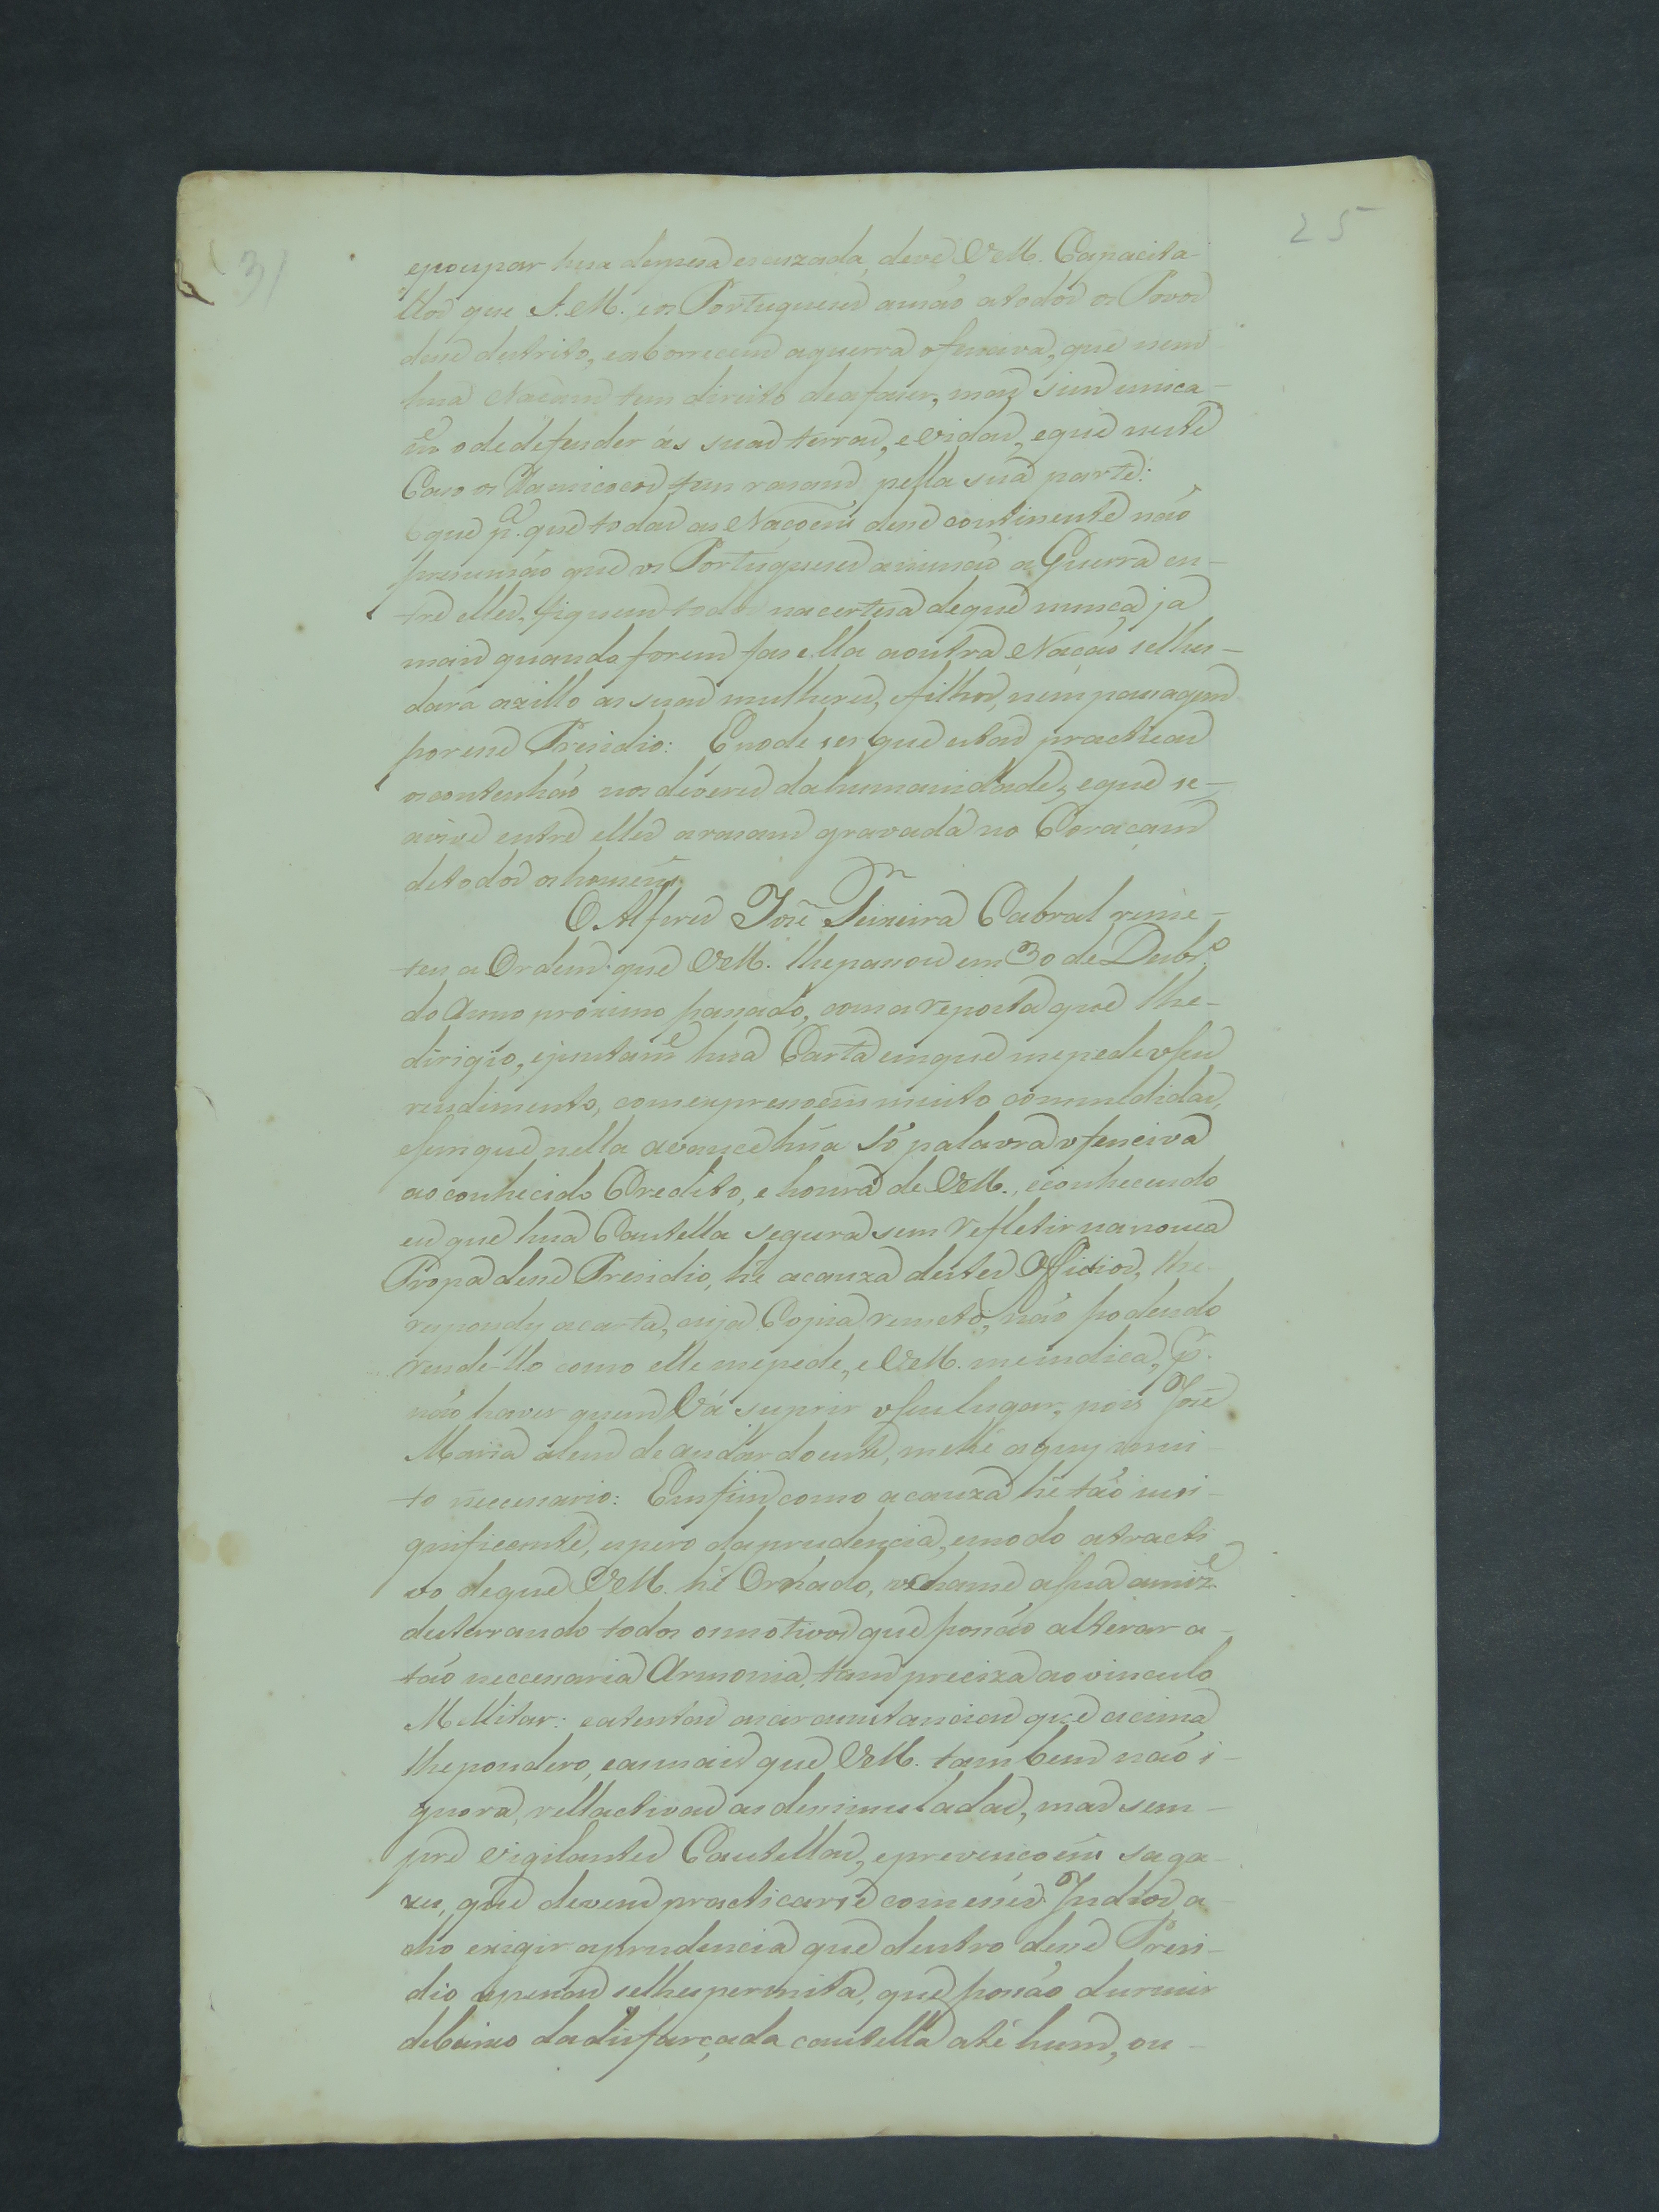 25
31
epoupar hua despesa escuzada, deve VM. Capacita-
llos que S. M., eos Portugueses amão atodos os Povos
desse destrito, eaborrecem aguerra ofensiva, que nem
hua Nacam tem direito deafaser, mas sim unica-
me odedefender ás suas terras, e vidas, eque neste
Caso os Uaiucocos tem rasam pella sua parte:
Eque pa. que todas as Nacoens desse continente não
presumão que os Portugueses animão a Guerra en-
tre elles, fiquem todos nacertesa deque nunca ja
mais quando forem fasella aoutra Nação selhes-
dará azillo as suas mulheres, efilhos, nem passagem
poresse Presidio: Epode ser que estas practicas
oscontenhão nos déveres dahumanidade, eque se-
avive entre elles arasam gravada no Coraçam
detodos os homens.
O Alferes José Teixeira Cabral reme-
teu a Ordem que VM. lhepassou em 30 de Dezbro.
do Anno proximo passado, com a reposta que lhe-
dirigio, ejuntame hua Carta emque mepede oseu
rendimento, comexpressoens muito commedidas,
esemque nella avance hũa só palavra ofenciva
aoconhecido Credito, e honra de VM., econhecendo
eu que hua Cautella segura sem refletir nanossa
Tropa desse Presidio, hé acauza destes Officios, lhe-
respondy acarta, cuja Copia remeto, não podendo
rende-llo como elle mepede, e VM. meindica, pr.
não haver quem Vá suprir oseulugar, pois José
Maria alem de andar doente, mehé aquy mui-
to neccesario: Emfim como acauza hé tão insi-
gnificante, espero daprudencia, emodo atracti
vo deque VM. hé Ornado, ochame asua amize.
desterrando todos osmotivos que possão alterar a-
tão neccesaria Armonia, tam preciza ao vinculo
Mellitar: eatentas ascircunstancias que acima
lhepondero, easmais que VM. tambem não i-
gnora, rellactivas as desimuladas, mas sem-
pre vigilantes Cautellas, eprevençoens saga-
zes, que devem practicarse comesses Indios a-
cho exigir aprudencia que dentro desse Presi-
dio apenas selhespermita, que possão durmir
debaixo dadisfarçada cautella até hum, ou-